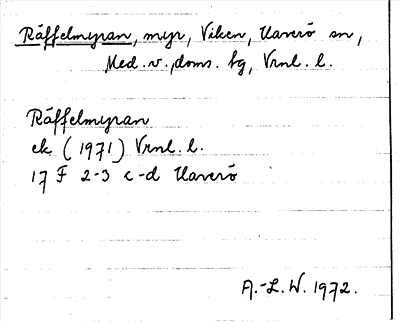 Räffelmyran, myr, Viken, Haverö sn,
Med. v. doms. fg, Vrnl. l.
Räffelmyran
ek (1971) Vrnl. l.
17 F 2-3 c-d Haverö
A.-L.W. 1972.